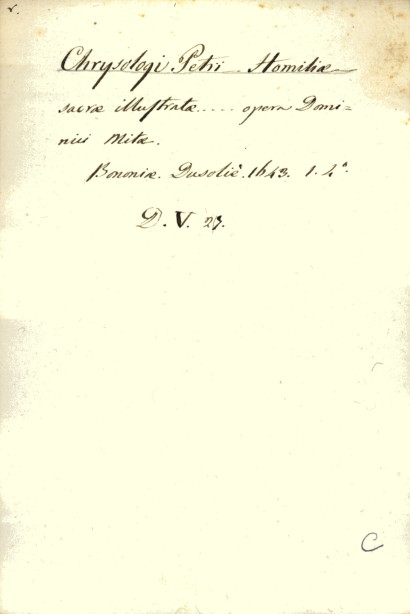 v.
Chrysologi Petri Homiliæ
sacræ illustratæ..... opera Domi=
nici Mitæ.
Bononiæ. Dusolië. 1643. 1. 4°.
D. V. 27.
C